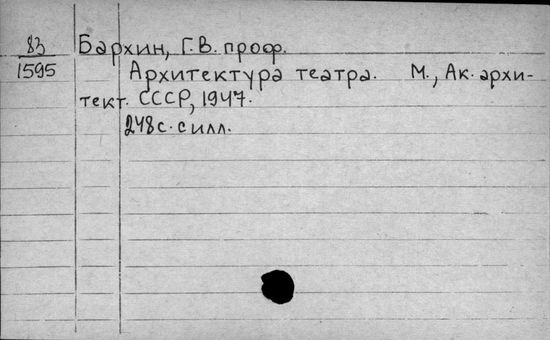 83 Бархин, Г.В. проф.
1595 Архитектура театра. М., Ак. архи-
тект. СССР, 1947.
248с. с илл.